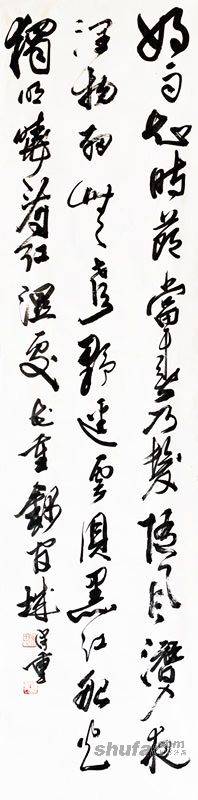 好雨知時節當春乃發生隨風潛入夜
潤物細無聲野徑雲俱黑江船火
獨明曉看紅濕處花重錦官城